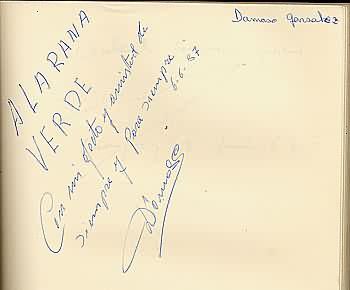 Damaso Gonzalez
A LA RANA
VERDE
Con mi afecto y amistad de
siempre y para siempre
6-6-87
Dámaso